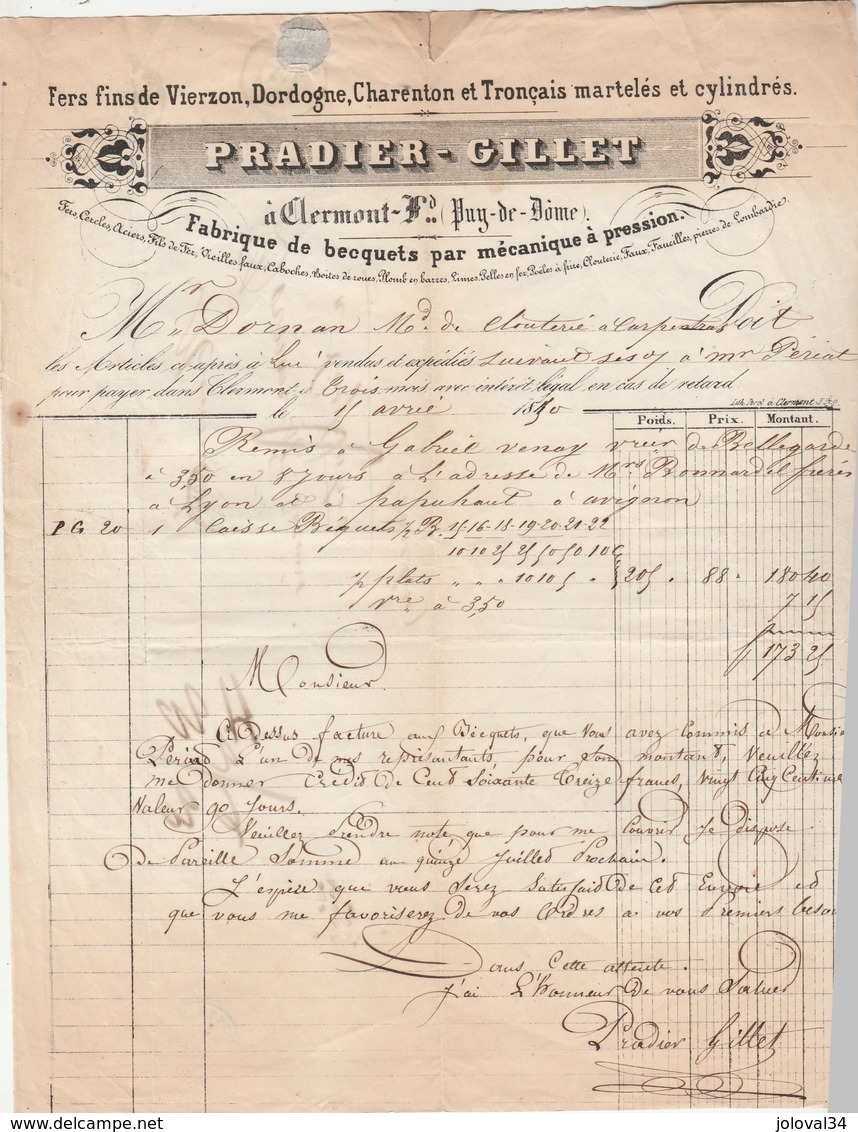 Fers fins de Vierzon, Dordogne, Charenton et Tronçais martelés et cylindrés.
PRADIER - GILLET
à Clermont-Fd. (Puy-de-Dôme).
Fabrique de becquets par mécanique à pression.
Fers, Cercles, Aciers, Fils de Fer, Vieilles faux, Caboches, Boites de roues, Plomb en barres, Limes, Pelles en fer, Poëles à frire, Clouterie, Faux, Faucilles, pierres de Lombardie.
Mr Dornan Md. de Clouterie à Carpentras Doit
les Articles ci-après à Lui vendus et expédiés suivant ses o/ à mr Périat
pour payer dans Clermont à Trois mois avec intérêt légal en cas de retard
Lith. Perol à Clermont-Fd.
le 15 avril 1850
Poids. Prix. Montant.
Remis à Gabriel Venay de Bellegarde
à 3,50 en 8 jours à L'adresse de Mrs Bonnardel frères
à Lyon et à papuhaut à avignon
PG 20 1 Caisse Béquets 1/2 B. 15-16-18-19-20-21-22
10 10 25 25 50 50 10
1/2 plats " " " 10 10 5 " 205 " 88 " 180 40
Vre à 3,50 7 15
f 173 25
Monsieur
Ci Dessus facture aux Becquets, que Vous avez Commis a Monsieur
Périad L'un De mes représantants, pour Son montant, Veuillez
me donner Crédit de Cent Soixante treize francs, Vingt Cinq Centimes
Valeur 90 Jours.
Veuillez prendre note que pour me Couvrir Je dispose
De Pareille Somme au quinze Juilled Prochain.
J'espère que vous Serez Satisfaid De Ced Envoie ed
que vous me favoriserez De vos Ordres a vos Premiers besoin
Dans Cette attente.
J'ai L'honneur De vous Saluer
Pradier Gillet
delcampe.net
joloval34